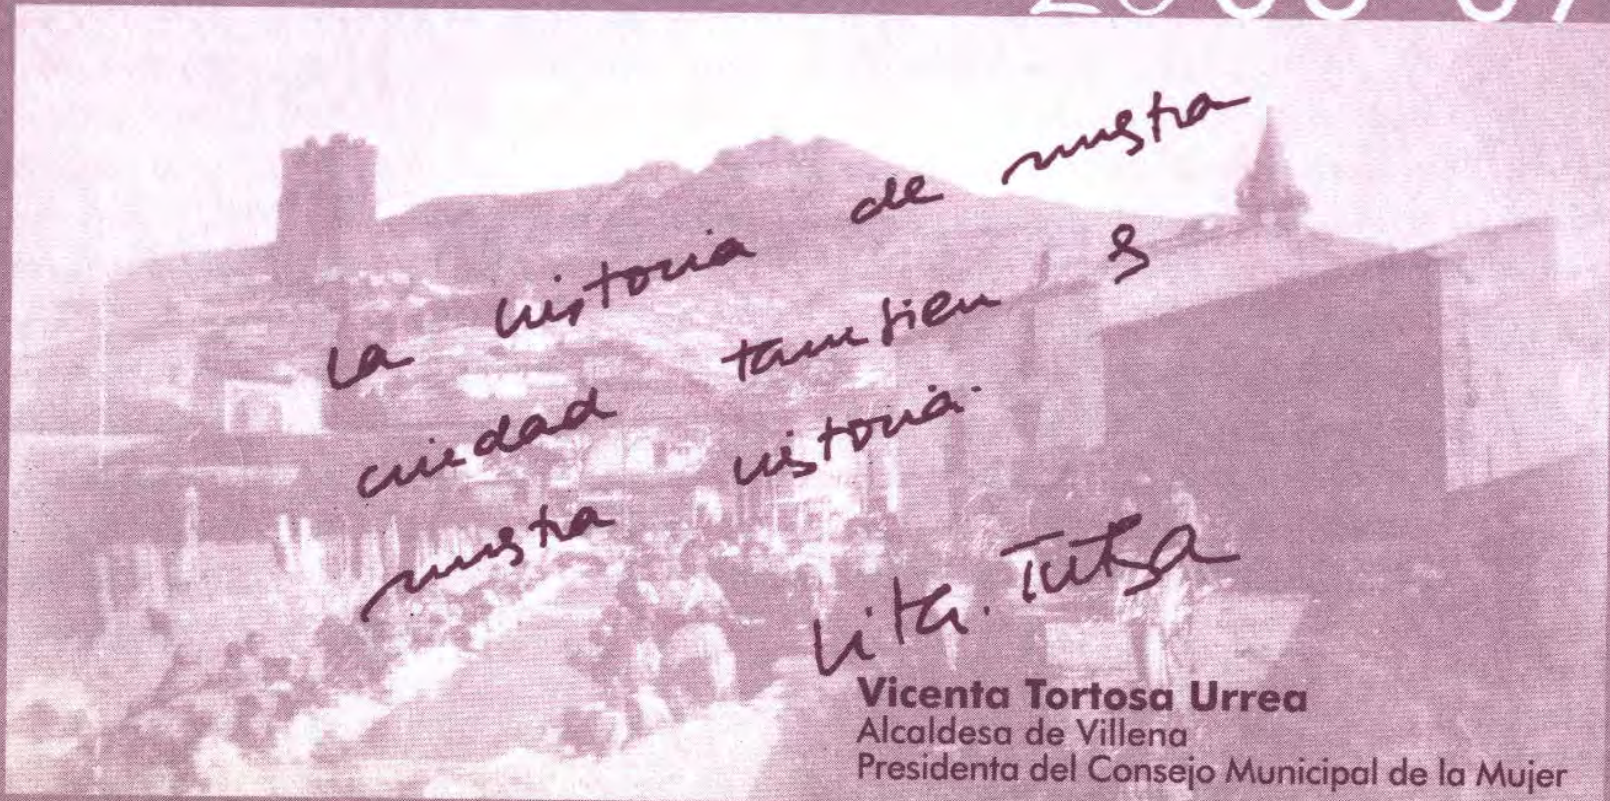 La historia de nuestra
ciudad tambien es
nuestra historia.
Vicenta Tortosa Urrea
Alcaldesa de Villena
Presidenta del Consejo Municipal de la Mujer